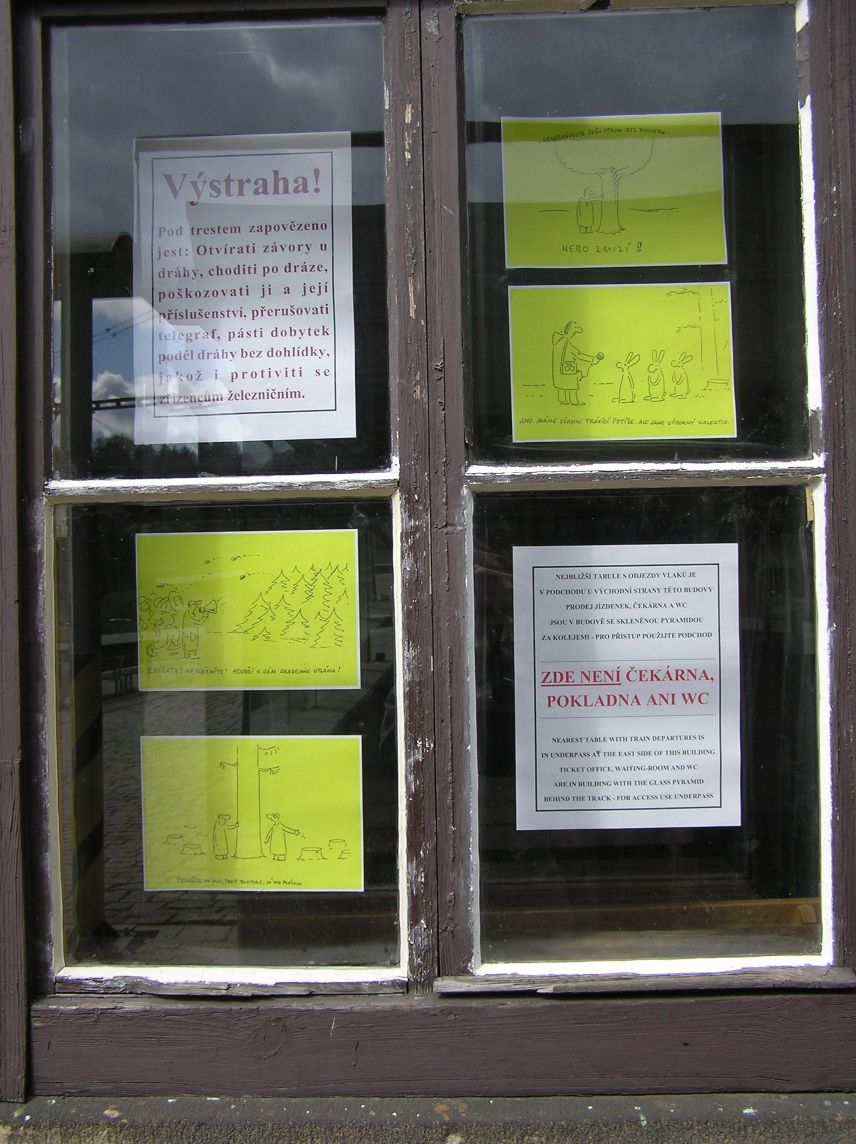 Výstraha!
Pod trestem zapovězeno
jest: Otvírati závory u
dráhy, choditi po dráze,
poškozovati ji a její
příslušenství, přerušovati
telegraf, pásti dobytek
podél dráhy bez dohlídky,
jakož i protiviti se
zřízencům železničním.
NENECHÁVEJTE SVŮJ STROM BEZ DOHLEDU
NEBO ZMIZÍ!
ANO, MÁME VŠICHNI TRÁVICÍ POTÍŽE. ALE JSME VÝBORNÝ KOLEKTIV.
ZVÍŘATA! NEBLÁZNĚTE! HOVOŘÍ K VÁM AKADEMIK VRÁNA!
PODRŽTE HO MI, PANE DOKTORE, JÁ HO
NEJBLIŽŠÍ TABULE S ODJEZDY VLAKŮ JE
V PODCHODU U VÝCHODNÍ STRANY TÉTO BUDOVY
PRODEJ JÍZDENEK, ČEKÁRNA A WC
JSOU V BUDOVĚ SE SKLENĚNOU PYRAMIDOU
ZA KOLEJEMI - PRO PŘÍSTUP POUŽIJTE PODCHOD
ZDE NENÍ ČEKÁRNA,
POKLADNA ANI WC
NEAREST TABLE WITH TRAIN DEPARTURES IS
IN UNDERPASS AT THE EAST SIDE OF THIS BUILDING
TICKET OFFICE, WAITING-ROOM AND WC
ARE IN BUILDING WITH THE GLASS PYRAMID
BEHIND THE TRACK - FOR ACCESS USE UNDERPASS